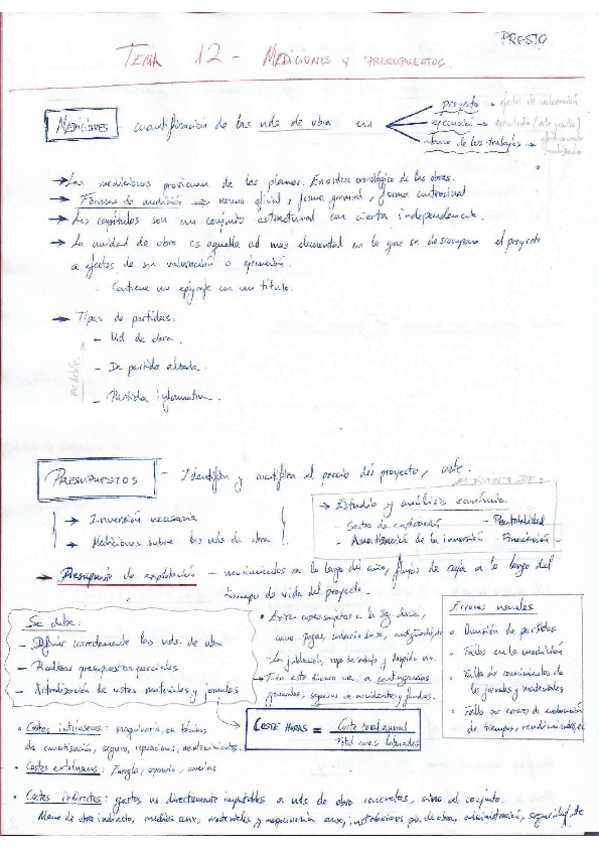 PRESTO
TEMA 12 - MEDICIONES Y PRESUPUESTOS.
MEDICIONES cuantificación de las uds de obra en
proyecto → efectos de valoración
ejecución →
abono de los trabajos → efectivamente realizados
→ Las mediciones provienen de los planos. En orden cronológico de las obras.
→ Formas de medición → norma oficial, forma general, forma contractual
→ Los capítulos son un conjunto estructural con cierta independencia.
→ La unidad de obra es aquella ud mas elemental en la que se descompone el proyecto
a efectos de su valoración o ejecución.
- Contiene un epígrafe con un título.
→ Tipos de partidas.
- Ud de obra.
- De partida alzada.
- Partida informativa.
medible
PRESUPUESTOS - Identifica y cuantifica el precio del proyecto,
ES DISTINTO DE:
→ Inversión necesaria
→ Mediciones sobre las uds de obra
→ Estudio y análisis económico.
- Gastos de explotación - Rentabilidad
- Amortización de la inversión Financiación -
→ Presupuesto de explotación - movimientos a lo largo del año, flujos de caja a lo largo del
tiempo de vida del proyecto.
Se debe:
- Definir correctamente las uds. de obra
- Realizar presupuestos parciales
- Actualización de costes materiales y jornales
como pagas,
jubilación, ropa de trabajo y despido
→ Todo esto divide en a
generales, seguros de accidentes y
COSTE HORAS = Coste total anual / Total horas laboradas
Errores usuales
• Omisión de partidas
• Fallos en la medición
• Falta de conocimientos de
los jornales y materiales
• Fallo por errores de
de tiempos, rendimientos, etc
• Costes intrínsecos: maquinaria, en términos
de amortización, seguro, reparaciones, mantenimiento.
• Costes extrínsecos: Energía, operario,
• Costes indirectos: gastos no directamente imputables a uds de obra concretas, sino al conjunto.
Mano de obra indirecta, medios aux, materiales y maquinaria aux, instalaciones pie de obra, administración, seguridad, etc